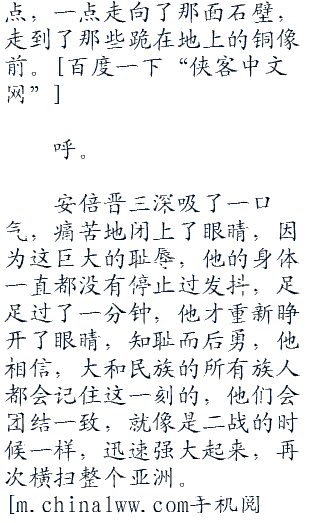 点，一点走向了那面石壁，
走到了那些跪在地上的铜像
前。[百度一下“侠客中文
网”]
呼。
安倍晋三深吸了一口
气，痛苦地闭上了眼睛，因
为这巨大的耻辱，他的身体
一直都没有停止过发抖，足
足过了一分钟，他才重新睁
开了眼睛，知耻而后勇，他
相信，大和民族的所有族人
都会记住这一刻的，他们会
团结一致，就像是二战的时
候一样，迅速强大起来，再
次横扫整个亚洲。
[m.china1ww.com手机阅